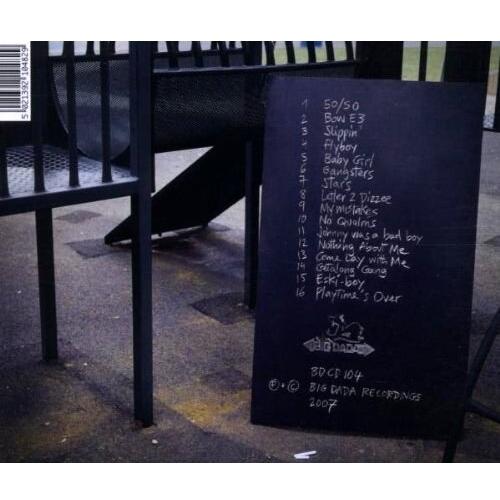 5 021392 104829
1 50/50
2 Bow E3
3 Slippin'
4 Flyboy
5 Baby Girl
6 Gangsters
7 Stars
8 Letter 2 Dizzee
9 My Mistakes
10 No Qualms
11 Johnny was a bad boy
12 Nothing About Me
13 Come Day with Me
14 Getalong Gang
15 Eski-boy
16 PlayTime's Over
BIG DADA
BDCD 104
Ⓟ+© BIG DADA RECORDINGS
2007